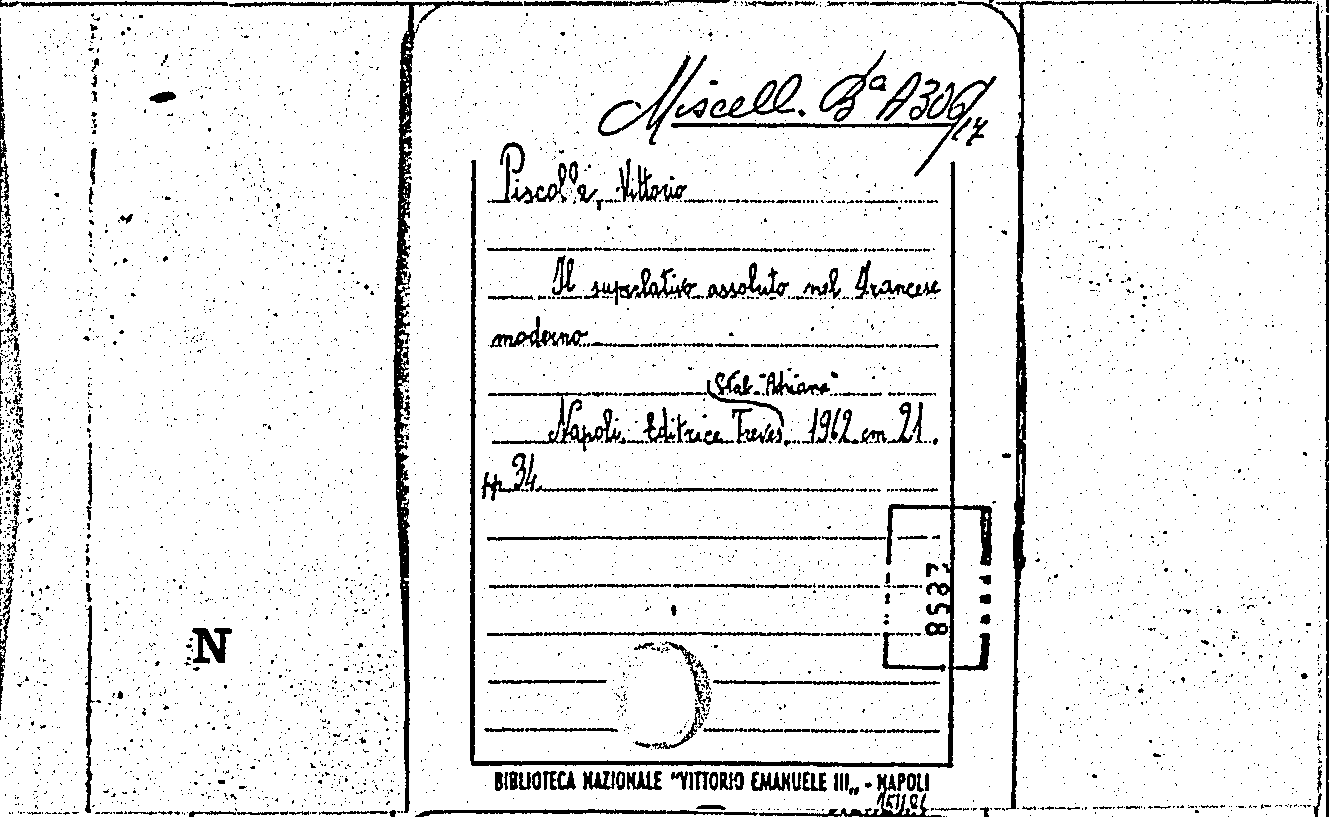 Miscell. Bª A306/17
Vittorio
Il superlativo assoluto nel francese
moderno
Stab. "Adriana"
Napoli, Editrice Treves, 1962 cm 21.
pp. 34.
8587
N
BIBLIOTECA NAZIONALE "VITTORIO EMANUELE III„ - NAPOLI